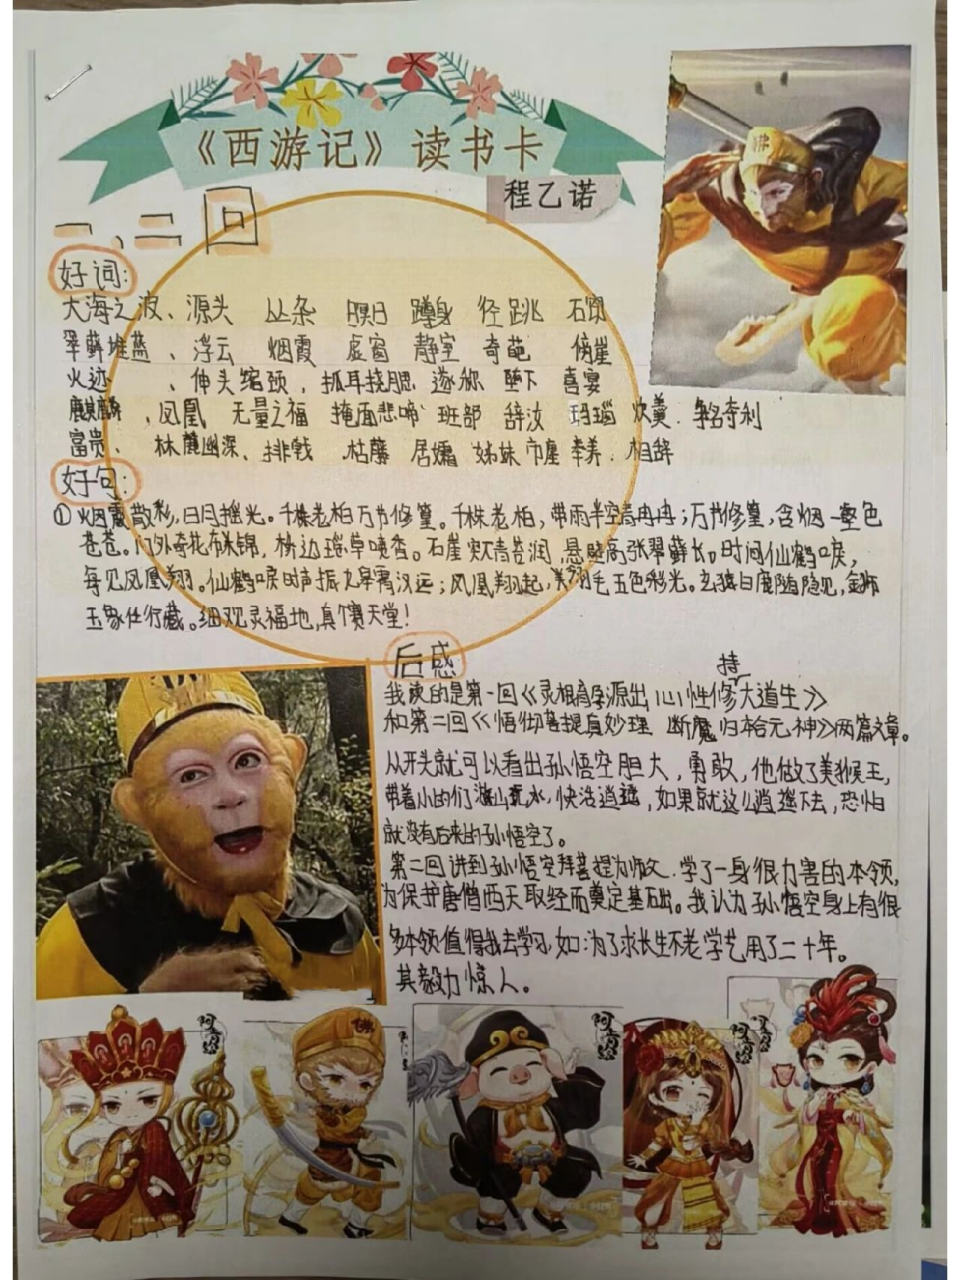 《西游记》读书卡
程乙诺
一、二回
好词:
大海之波、源头 丛杂 瞑目 蹲身 径跳 石窍
翠藓堆蓝、浮云 烟霞 虚窗 静室 奇葩 傍崖
火迹、伸头缩颈、抓耳挠腮 遂称 歇下 喜宴
麒麟,凤凰 无量之福 掩面悲啼 班部 辞汝 玛瑙 炊羹.争名夺利
富贵、林麓幽深、排戟 枯藤 居孀 姊妹 市廛 奉养.相辞
好句:
①烟霞散彩,日月摇光。千株老柏万节修篁。千株老柏,带雨半空青冉冉;万节修篁,含烟一壑色
苍苍。门外奇花布锦,桥边瑶草喷香。石崖突青苔润,悬壁高张翠藓长。时闻仙鹤唳,
每见凤凰翔。仙鹤唳时声振九皋霄汉远;凤凰翔起,美羽毛五色彩光。玄猿白鹿随隐见,金狮
玉象任行藏。细观灵福地,真个赛天堂!
后感
持
我读的是第一回《灵根育孕源出 心性修大道生》
和第二回《悟彻菩提真妙理 断魔归本合元神》两篇文章。
从开头就可以看出孙悟空胆大,勇敢,他做了美猴王,
带着小的们游山玩水,快活逍遥,如果就这么逍遥下去,恐怕
就没有后来的孙悟空了。
第二回讲到孙悟空拜菩提为师父.学了一身很力害的本领,
为保护唐僧西天取经而奠定基础。我认为孙悟空身上有很
多本领值得我去学习,如:为了求长生不老学艺用了二十年。
其毅力惊人。